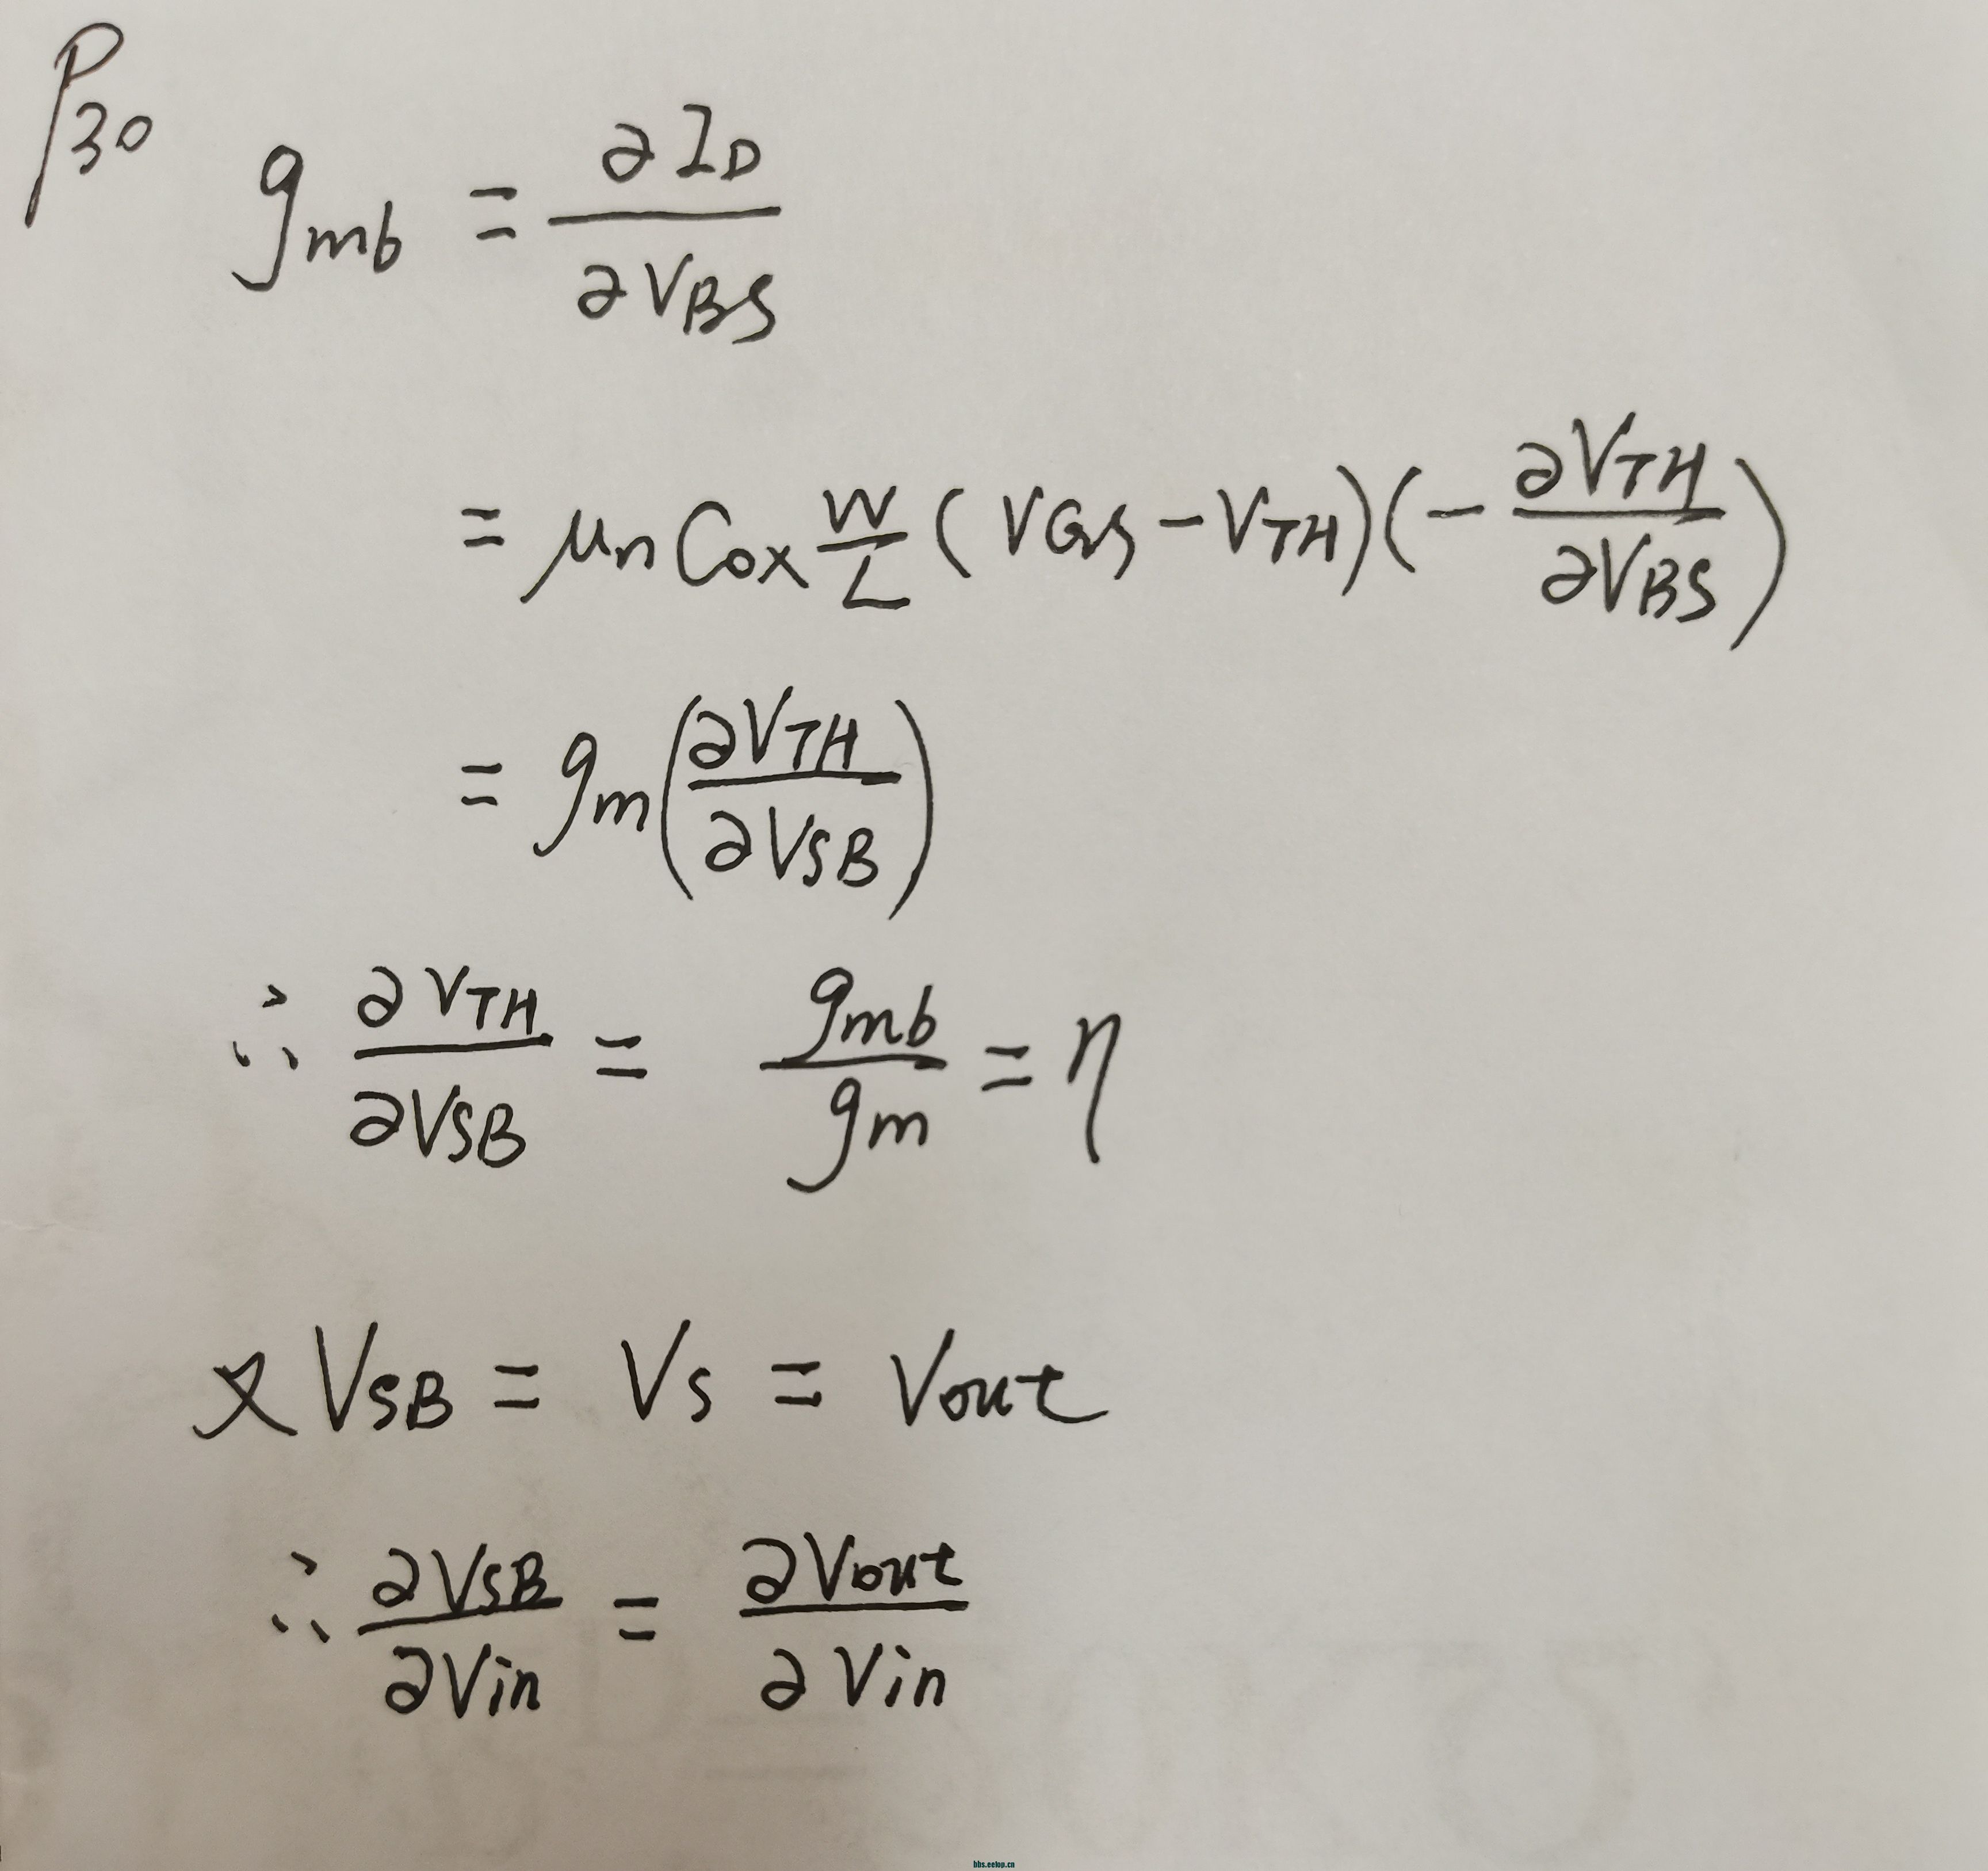 P30
g_mb = ∂I_D / ∂V_BS
= μ_n C_ox W/L (V_GS - V_TH)(- ∂V_TH / ∂V_BS)
= g_m (∂V_TH / ∂V_SB)
∴ ∂V_TH / ∂V_SB = g_mb / g_m = η
又 V_SB = V_S = V_out
∴ ∂V_SB / ∂V_in = ∂V_out / ∂V_in
bbs.eetop.cn